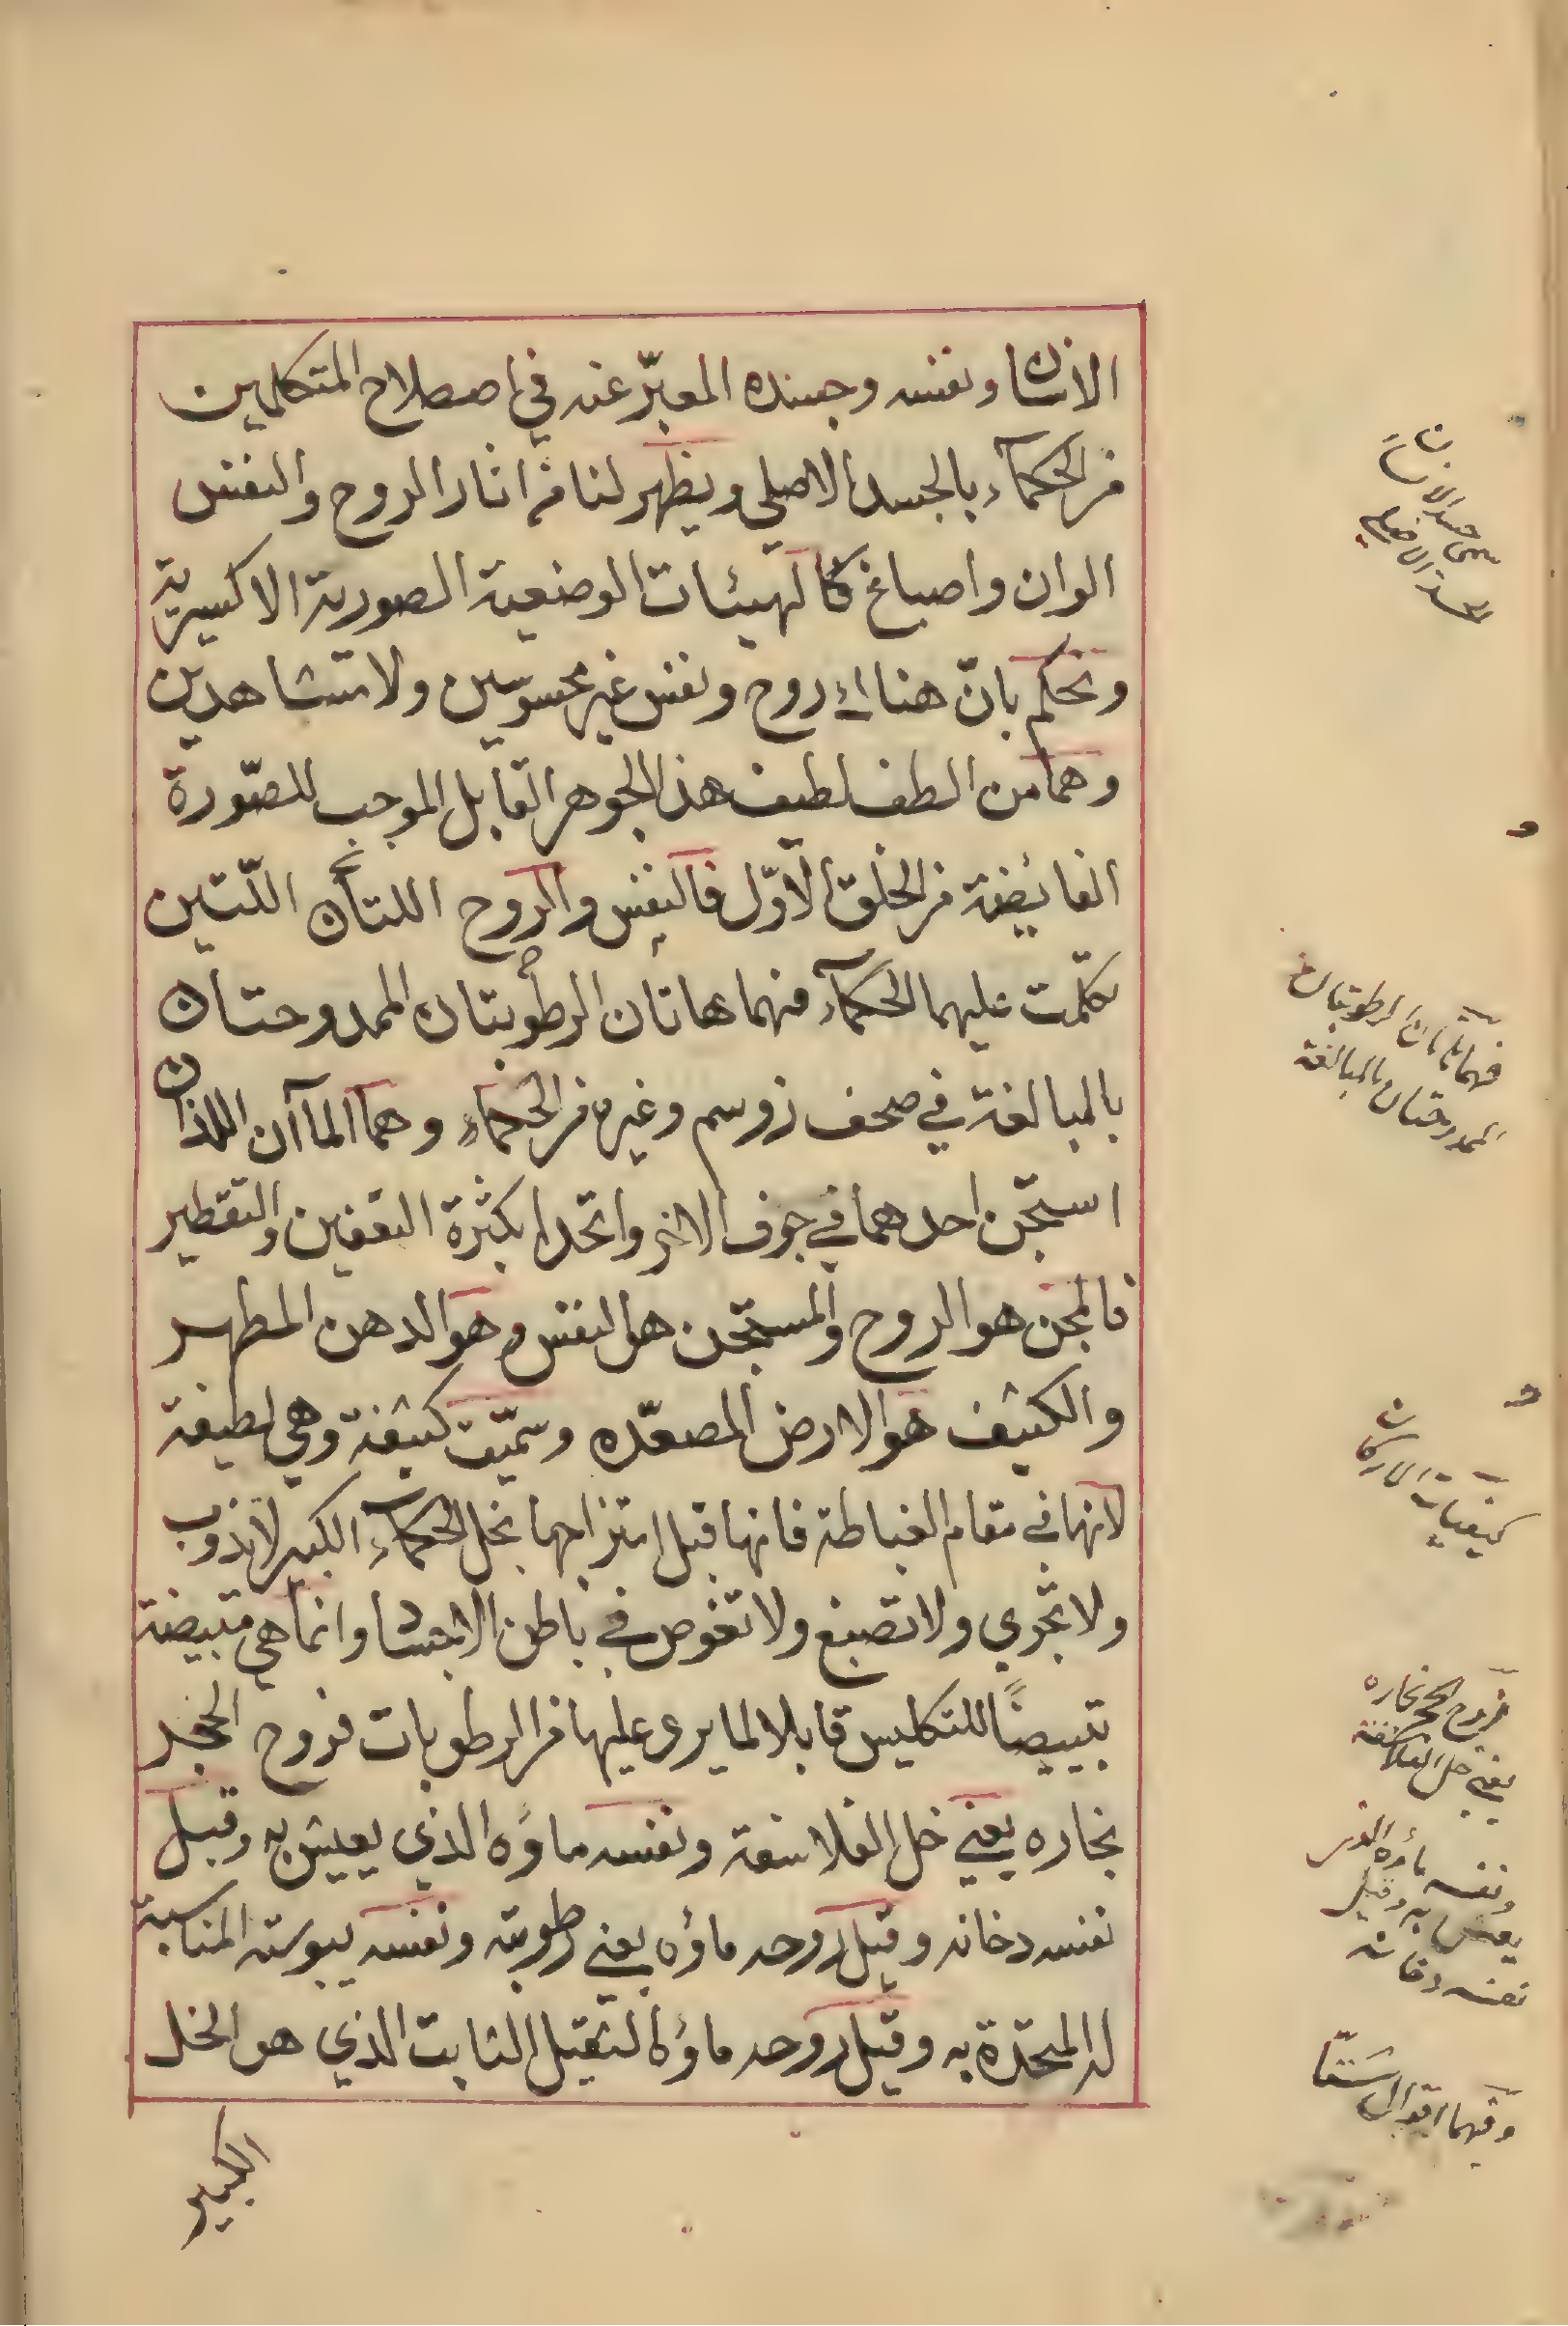 الانسان ونفسه وجسده المعبّر عنه في اصطلاح المتكلمين
من الحكمآء بالجسد الاصلي ويظهر لنا من اثار الروح والنفس
الوان واصباغ كالهيئات الوضعية الصورية الاكسيرية
ونحكم بانّ هناك روح ونفس غير محسوسين ولا متشاهدين
وهما من الطف لطيف هذا الجوهر القابل الموجب للصّورة
الفائيضة من الخلق الاوّل فالنفس والروح اللتان اللّتين
تكلّمت عليهما الحكمآء فهما هاتان الرطوبتان الممدوحتان
بالمبالغة في صحف زوسم وغيره من الحكمآء وهما المآان اللذان
استجّن احدهما في جوف الاخر واتحدا بكثرة التعفين والتقطير
فالمجن هو الروح والمستجّن هو النفس وهو الدهن المطهر
والكثيف هو الارض المصعّده وسمّيت كثيفة وهي لطيفة
لانها في مقام الغباطة فانها قبل امتزاجها بخل الحكمآء الكبير لا تذوب
ولا تجري ولا تصبغ ولا تغوص في باطن الاجساد وانما هي مبيضة
تبييضًا للتكليس قابلا لما يرى عليها من الرطوبات فروح الحجر
بخاره يعني خل الفلاسفة ونفسه ماؤه الذي يعيش به وقيل
نفسه دخانه وقيل روحه ماؤه يعني رطوبته ونفسه يبوسته المناسبة
له المتحدة به وقيل روحه ماؤه الثقيل الثابت الذي هو الخل
الكبير
جسد الانسان
الجسد الاصلي
فهما هاتان الرطوبتان
الممدوحتان بالمبالغة
كيفيات الاركان
فروح الحجر بخاره
يعني خل الفلاسفة
ونفسه ماؤه الذي
يعيش به وقيل
نفسه دخانه
وفيهما اقوال شتّى